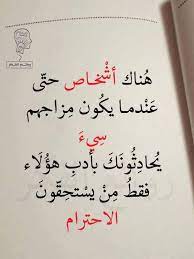 هُناك أشْخَاص حتّى
عَنْدما يكُون مِزاجهم
سِيءَ
يُحادِثُونَكَ بأدبِ هؤُلَاء
فقطُ مِنْ يسْتحِقّونَ
الاحترام